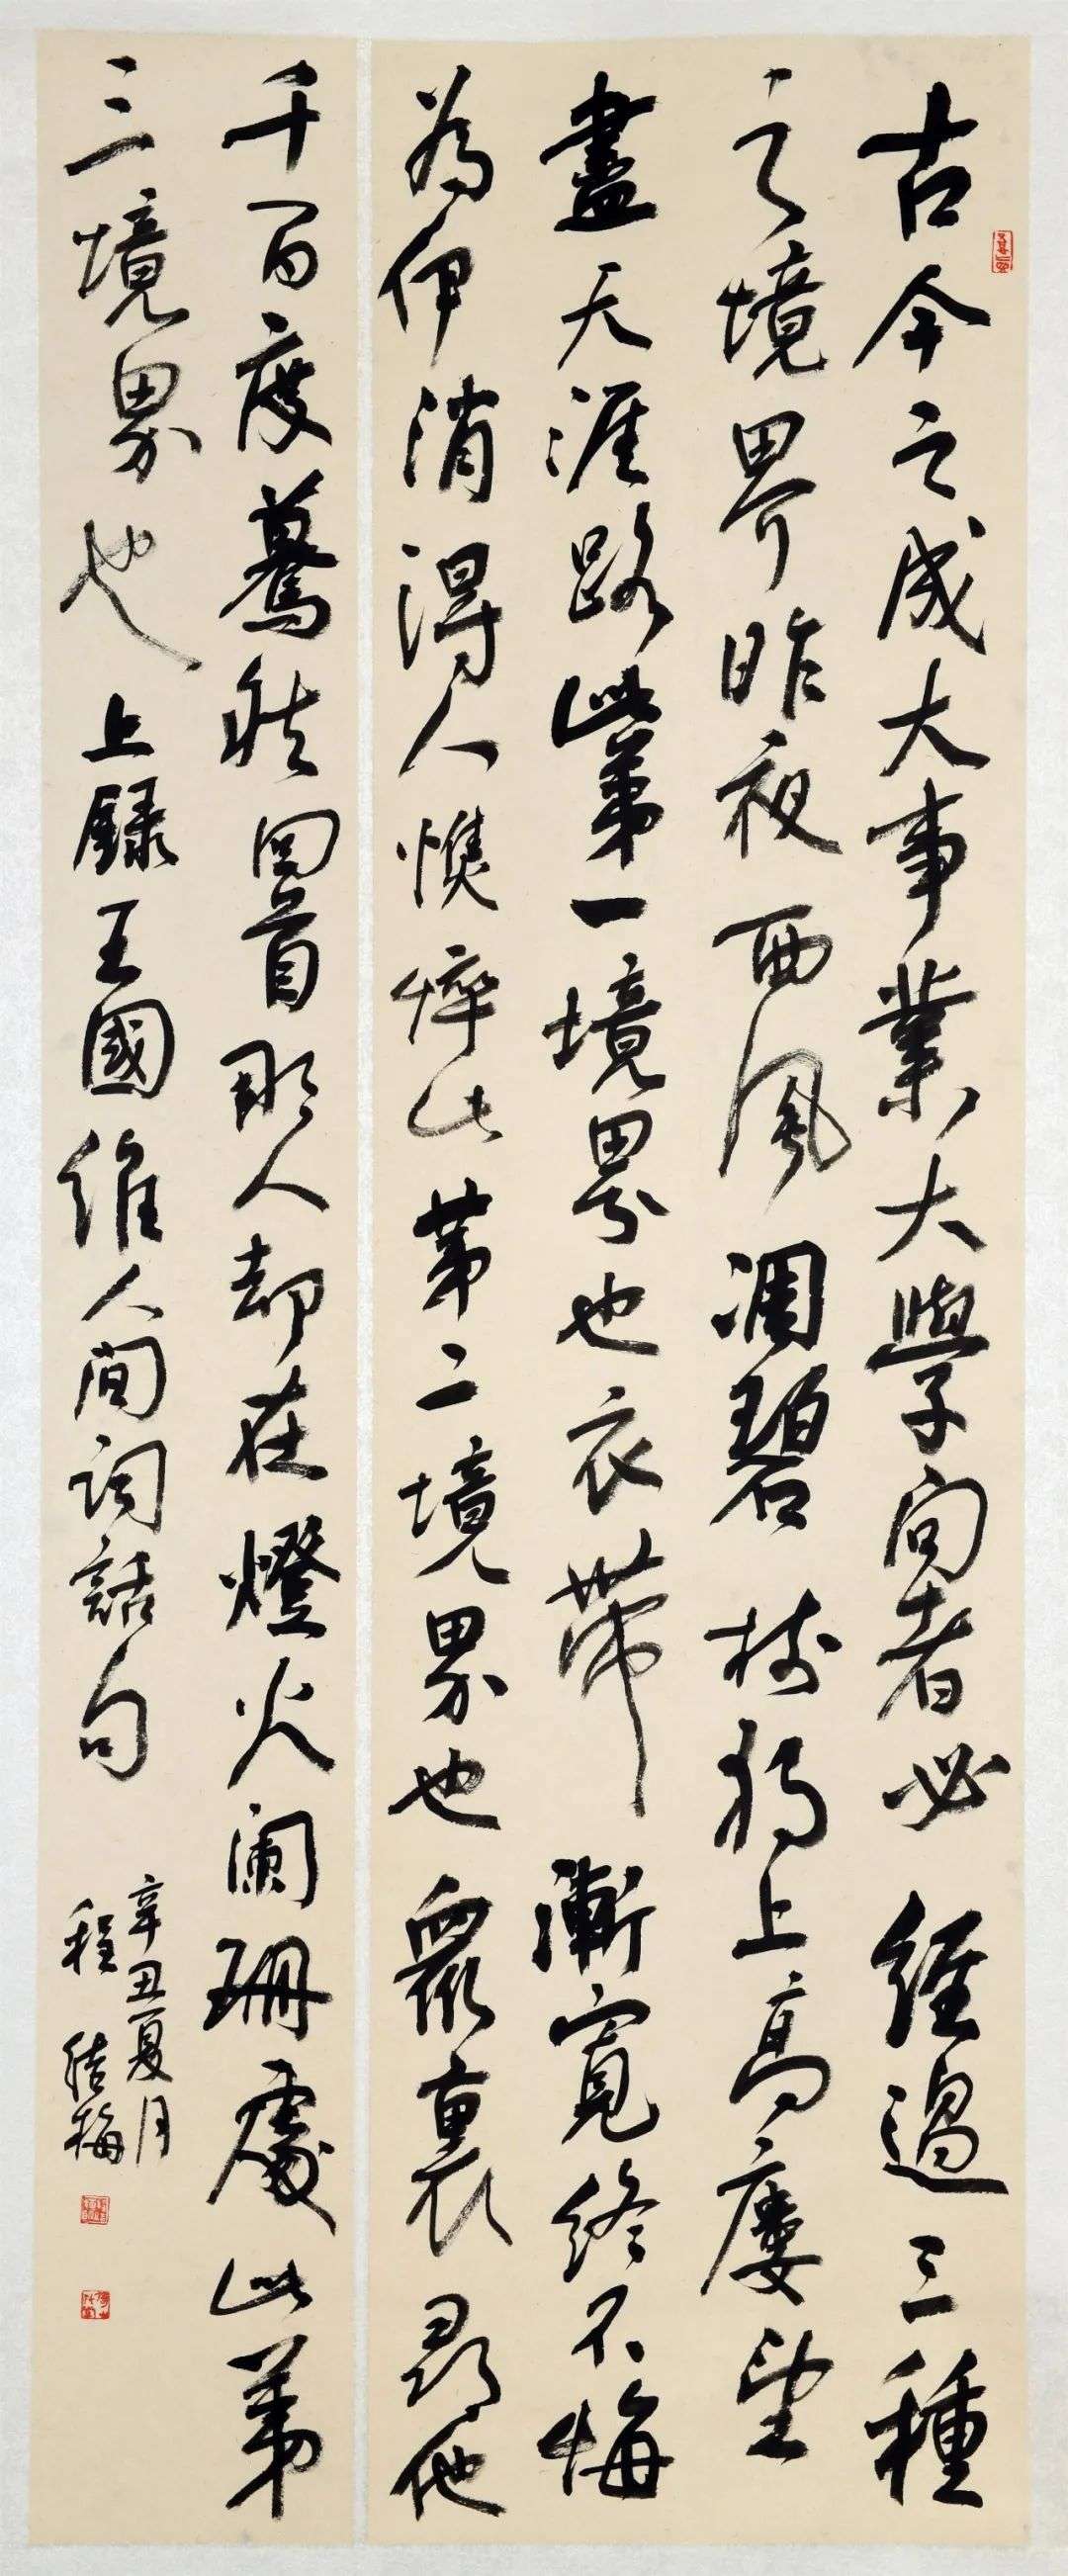 古今之成大事業大學问者必經過三種
之境界昨夜西風凋碧樹獨上高廔望
盡天涯路此第一境界也衣帶漸寬終不悔
為伊消得人憔悴此第二境界也眾裏尋他
千百度驀然回首那人却在燈火闌珊處此第
三境界也 上錄王國維人间词話句
辛丑夏月
程 结梅